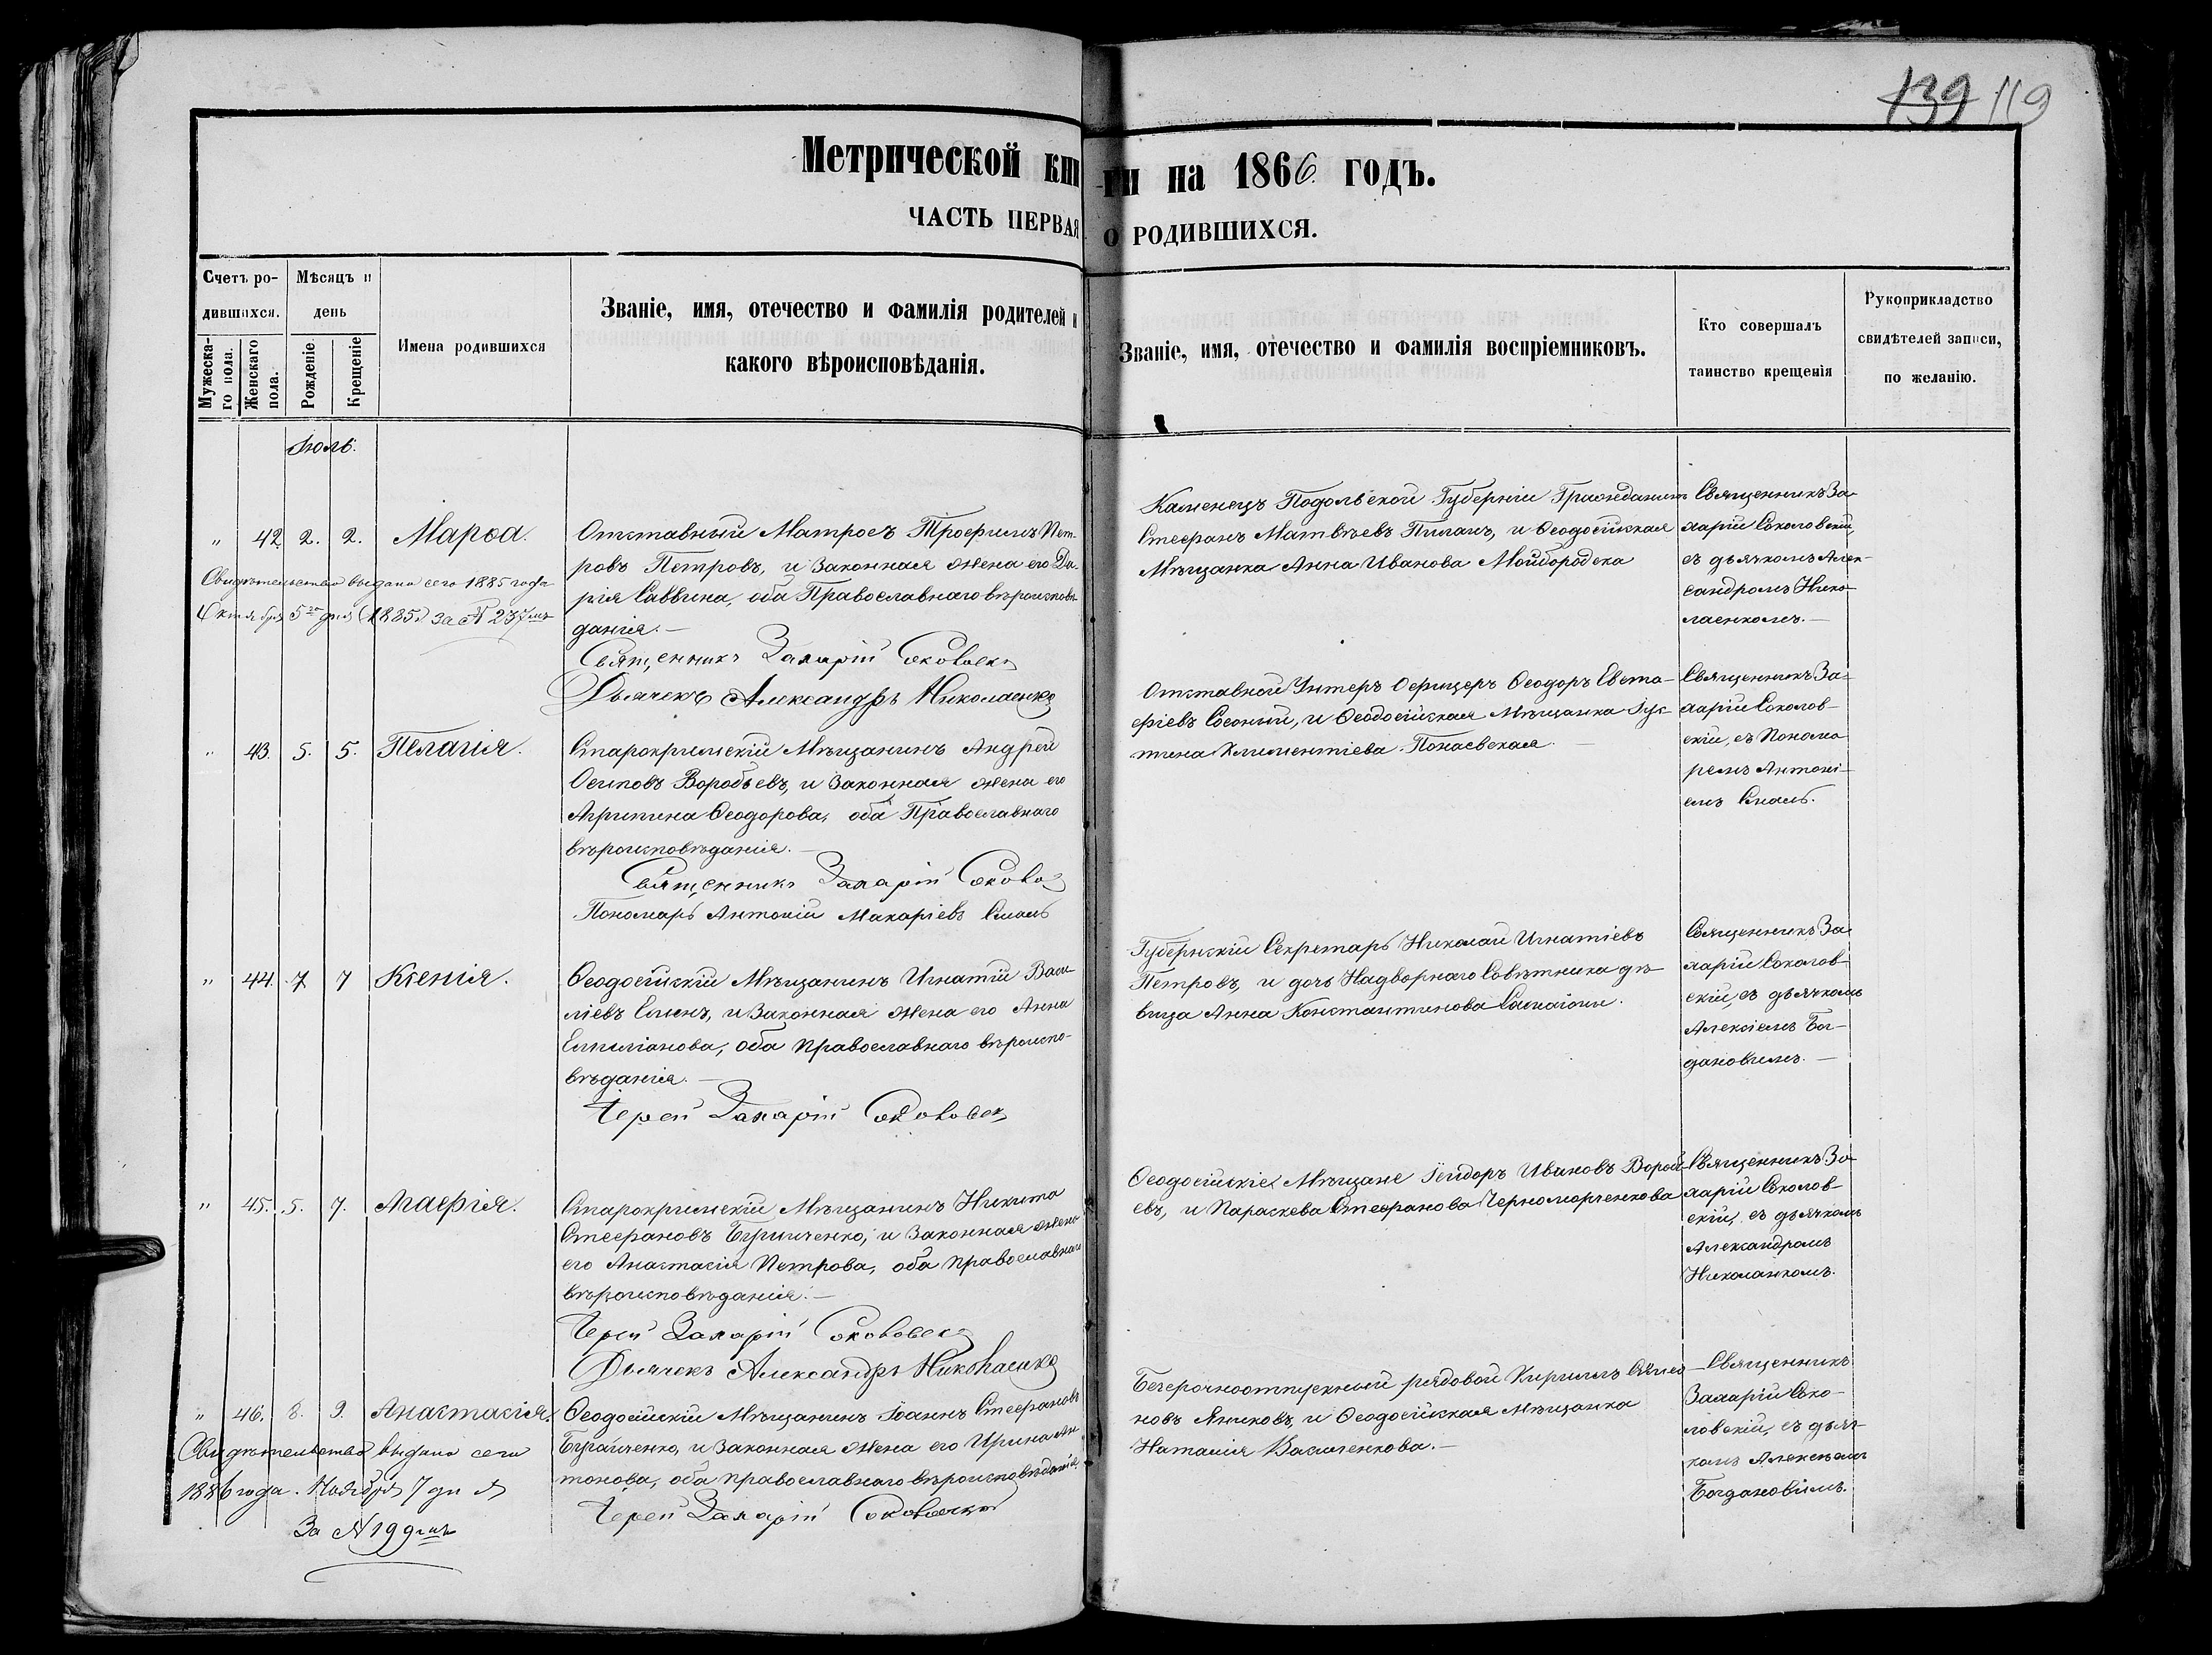 139 119
Метрической книги на 1866 годъ.
ЧАСТЬ ПЕРВАЯ О РОДИВШИХСЯ.
Счетъ родившихся.
Мужескаго пола.
Женскаго пола.
Мѣсяцъ и день
Рожденіе.
Крещеніе
Имена родившихся
Званіе, имя, отечество и фамилія родителей и
какого вѣроисповѣданія.
Званіе, имя, отечество и фамилія воспріемниковъ.
Кто совершалъ
таинство крещенія
Рукоприкладство
свидѣтелей записи,
по желанію.
Іюль.
„ 42. 2. 2. Марѳа.
Свидѣтельство выдано сего 1885 года
Октября 5го дня (1885) за N 237мъ
Отставный Матросъ Трофимъ Пет-
ровъ Петровъ, и Законная жена его Да-
рія Саввина, оба Православнаго вѣроисповѣ-
данія.—
Священникъ Захарій
Дьячекъ Александръ Николаенко
Каменецъ Подольской Губерніи Гражданинъ
Стефанъ Матвѣевъ Пиланъ, и Ѳеодосійская
Мѣщанка Анна Иванова Мойбородска
Священникъ За-
харій Соколовскій,
съ дьячкомъ Алек-
сандромъ Нико-
лаенкомъ.—
„ 43. 5. 5. Пелагія.
Старокримскій Мѣщанинъ Андрей
Осиповъ Воробьевъ, и Законная жена его
Агрипина Ѳеодорова, оба Православнаго
вѣроисповѣданія.—
Священникъ Захарій
Пономарь Антоній Макаріевъ
Отставной Унтеръ Офицеръ Ѳеодоръ Евста-
фіевъ и Ѳеодосійская Мѣщанка Іус-
тина Климентіева
Священникъ За-
харій Соколов-
скій, съ Понома
ремъ Антоні-
емъ
„ 44. 7 7 Ксенія.
Ѳеодосійскій Мѣщанинъ Игнатій Васи-
ліевъ и Законная жена его Анна
Емиліанова, оба православнаго вѣроиспо-
вѣданія.—
Іерей Захарій
Губернскій Секретарь Николай Игнатіевъ
Петровъ, и дочь Надворнаго Совѣтника дѣ-
вица Анна Константинова
Священникъ За-
харій Соколов-
скій, съ дьячкомъ
Алексіемъ Бог-
дановымъ.—
„ 45. 5. 7. Агафія.
Старокримскій Мѣщанинъ Никита
Стефановъ и Законная жена
его Анастасія Петрова, оба православнаго
вѣроисповѣданія.—
Іерей Захарій
Дьячекъ Александръ Николаенко
Ѳеодосійскіе Мѣщане Ісидоръ Ивановъ Вороб-
евъ, и Параскева Стефанова Черноморченкова
Священникъ За-
харій Соколов-
скій, съ дьячкомъ
Александромъ
Николаенкомъ.
„ 46. 8. 9. Анастасія.
Свидѣтельство выдано сего
1886 года. Ноября 7 дня
За N 199мъ
Ѳеодосійскій Мѣщанинъ Іоаннъ Стефановъ
и Законная жена его Ирина Ан-
тонова, оба православнаго вѣроисповѣданія.
Іерей Захарій
Безсрочноотпускный рядовой Кириллъ
новъ и Ѳеодосійская Мѣщанка
Наталія Василенкова.—
Священникъ
Захарій Соко-
ловскій, съ дьяч-
комъ Алексѣемъ
Богдановымъ.